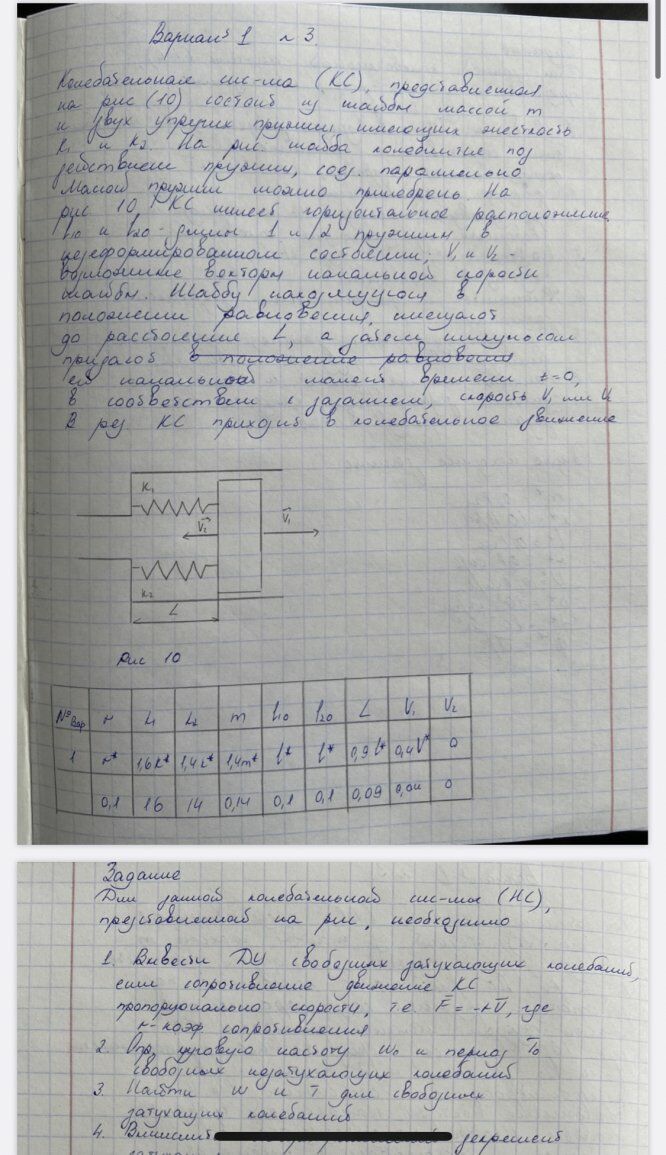 Вариант 1 №3.
Колебательная сис-ма (КС), представленная
на рис (10) состоит из шайбы массой m
и двух упругих пружин, имеющих жесткость
k₁ и k₂. На рис. шайба колеблится под
действием пружин, соед. параллельно
Массой пружин можно принебречь. На
рис 10 КС имеет горизонтальное расположение
l₁₀ и l₂₀ - длины 1 и 2 пружины в
недеформированном состоянии; V₁ и V₂ -
возможные векторы начальной скорости
шайбы. Шайбу находящуюся в
положении равновесия, смещают
до расстояния L, а затем импульсом
придают в положение равновесия
ей начальный момент времени t=0,
в соответствии с заданием, скорость V₁ или V₂
В рез. КС приходит в колебательное движение
k₁
V₂
V₁
k₂
L
Рис 10
№ вар r k₁ k₂ m l₁₀ l₂₀ L V₁ V₂
1 r* 1,6k* 1,4k* 1,4m* l* l* 0,9l* 0,4V* 0
0,1 16 14 0,14 0,1 0,1 0,09 0,04 0
Задание
Для данной колебательной сис-мы (КС),
представленной на рис, необходимо
1. Вывести ДУ свободных затухающих колебаний,
если сопротивление движению КС
пропорционально скорости, т.е. F = -rV, где
r - коэф сопротивления
2. Опр, круговую частоту w₀ и период T₀
свободных незатухающих колебаний
3. Найти w и T для свободных
затухащих колебаний
4. Вычислить декремент